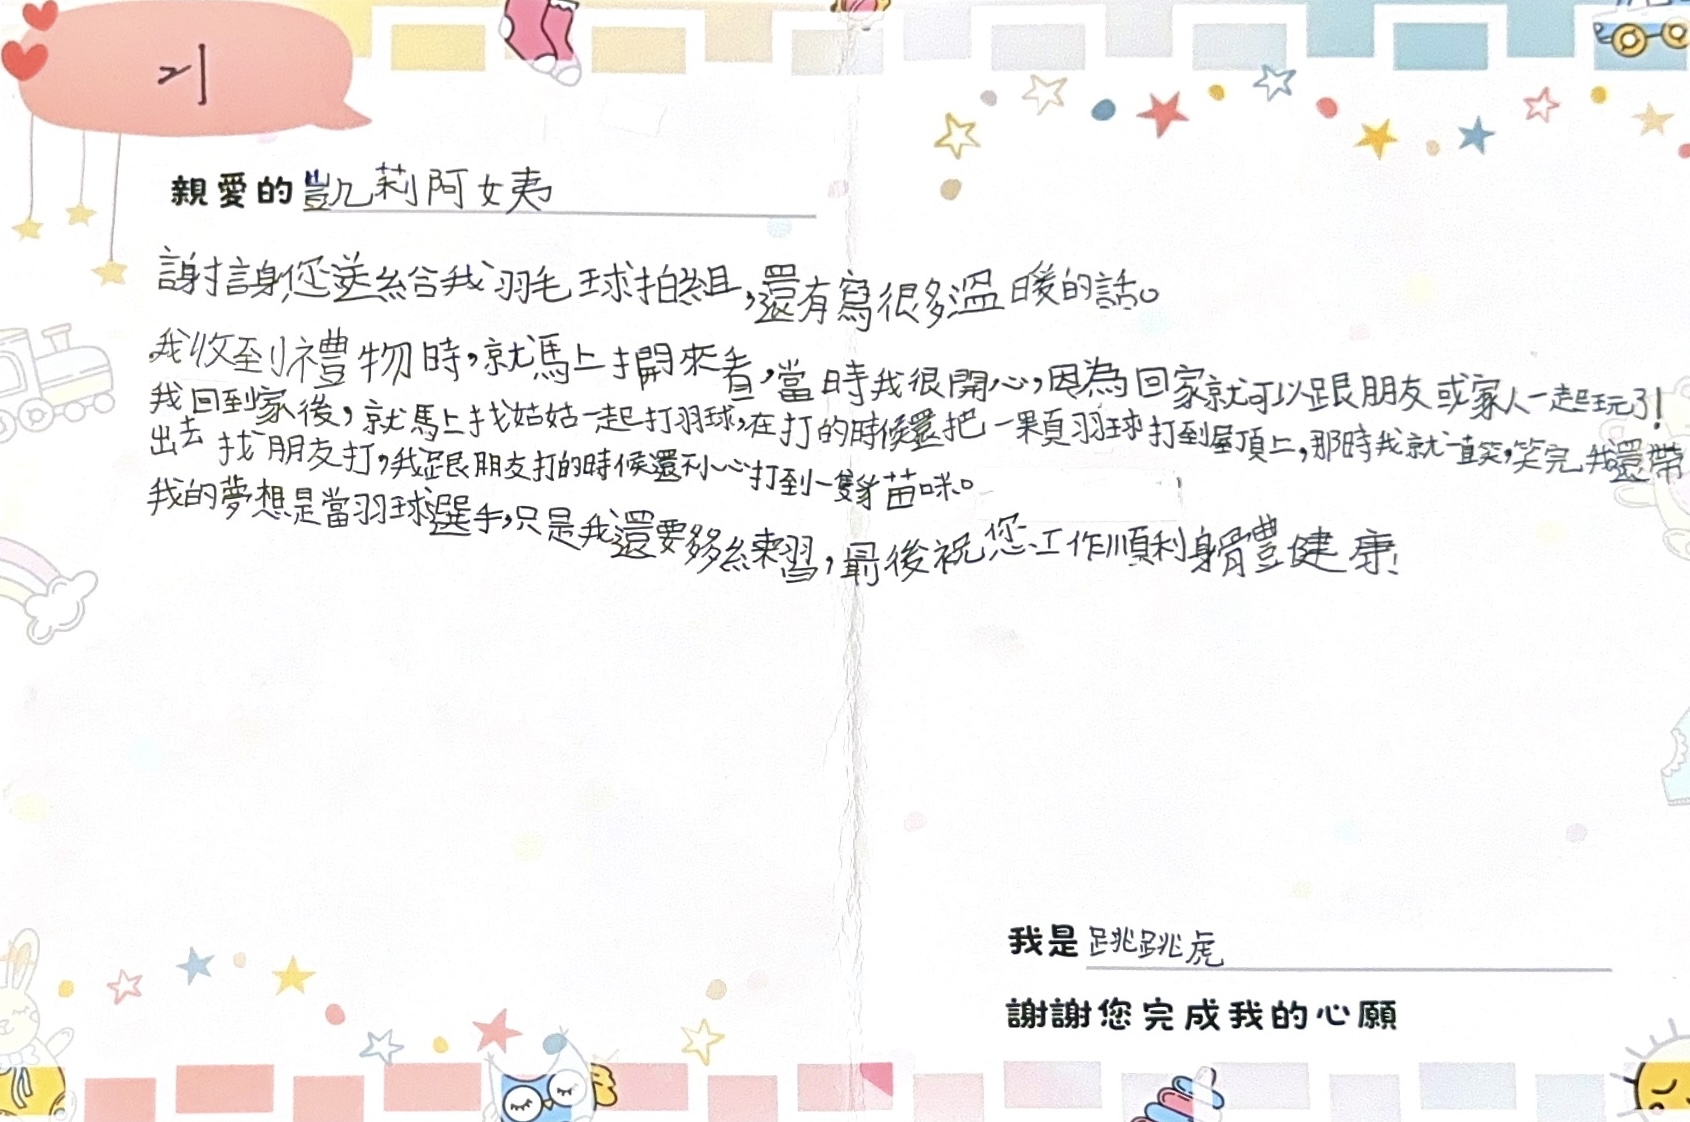 21
親愛的凱莉阿姨
謝謝您送給我羽毛球拍組,還有寫很多溫暖的話。
我收到禮物時,就馬上打開來看,當時我很開心,因為回家就可以跟朋友或家人一起玩了!
我回到家後,就馬上找姑姑一起打羽球,在打的時候還把一顆羽球打到屋頂上,那時我就一直笑,笑完我還帶
出去找朋友打,我跟朋友打的時候還不小心打到一隻貓咪。
我的夢想是當羽球選手,只是我還要多練習,最後祝您工作順利身體健康!
我是跳跳虎
謝謝您完成我的心願